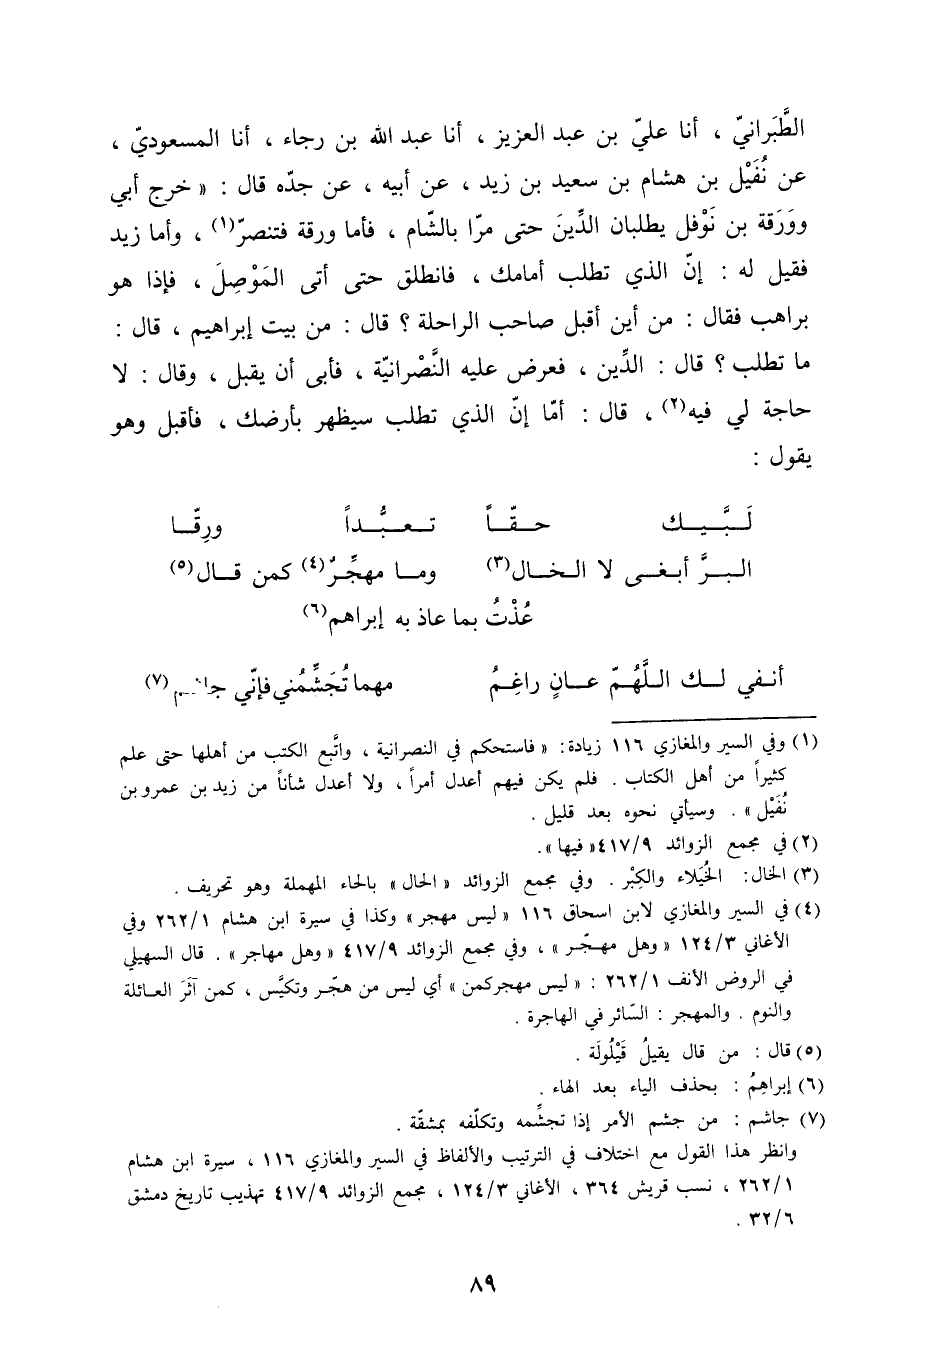 الطَّبَرانيّ ، أنا عليّ بن عبد العزيز ، أنا عبد الله بن رجاء ، أنا المسعوديّ ،
عن نُفَيْل بن هشام بن سعيد بن زيد ، عن أبيه ، عن جدّه قال : « خرج أبي
ووَرَقة بن نَوْفل يطلبان الدِّينَ حتى مرّا بالشّام ، فأما ورقة فتنصرّ(١) ، وأما زيد
فقيل له : إنّ الذي تطلب أمامك ، فانطلق حتى أتى المَوْصِلَ ، فإذا هو
براهب فقال : من أين أقبل صاحب الراحلة ؟ قال : من بيت إبراهيم ، قال :
ما تطلب ؟ قال : الدِّين ، فعرض عليه النَّصْرانيّة ، فأبى أن يقبل ، وقال : لا
حاجة لي فيه(٢) ، قال : أمّا إنّ الذي تطلب سيظهر بأرضك ، فأقبل وهو
يقول :
لَبَّيك حقّاً تعبُّداً ورِقّا
البرَّ أبغى لا الخال(٣) وما مهجِّرٌ(٤) كمن قال(٥)
عُذْتُ بما عاذ به إبراهم(٦)
أنفي لك اللَّهُمّ عانٍ راغِمُ مهما تُجَشِّمُني فإنّي جاشم(٧)
(١) وفي السير والمغازي ١١٦ زيادة: « فاستحكم في النصرانية ، واتَّبع الكتب من أهلها حتى علم
كثيراً من أهل الكتاب . فلم يكن فيهم أعدل أمراً ، ولا أعدل شأناً من زيد بن عمرو بن
نُفَيْل » . وسيأتي نحوه بعد قليل .
(٢) في مجمع الزوائد ٤١٧/٩« فيها ».
(٣) الخال: الخُيَلاء والكِبْر . وفي مجمع الزوائد « الحال » بالحاء المهملة وهو تحريف .
(٤) في السير والمغازي لابن اسحاق ١١٦ « ليس مهجر » وكذا في سيرة ابن هشام ٢٦٢/١ وفي
الأغاني ١٢٤/٣ « وهل مهجّر » ، وفي مجمع الزوائد ٤١٧/٩ « وهل مهاجر » . قال السهيلي
في الروض الأنف ٢٦٢/١ : « ليس مهجركمن » أي ليس من هجّر وتكيَّس ، كمن آثَرَ العائلة
والنوم . والمهجر : السّائر في الهاجرة .
(٥) قال : من قال يقيلُ قَيْلُولَة .
(٦) إبراهِمُ : بحذف الياء بعد الهاء .
(٧) جاشم : من جشم الأمر إذا تجشَّمه وتكلّفه بمشقّة .
وانظر هذا القول مع اختلاف في الترتيب والألفاظ في السير والمغازي ١١٦ ، سيرة ابن هشام
٢٦٢/١ ، نسب قريش ٣٦٤ ، الأغاني ١٢٤/٣ ، مجمع الزوائد ٤١٧/٩ تهذيب تاريخ دمشق
٣٢/٦ .
٨٩